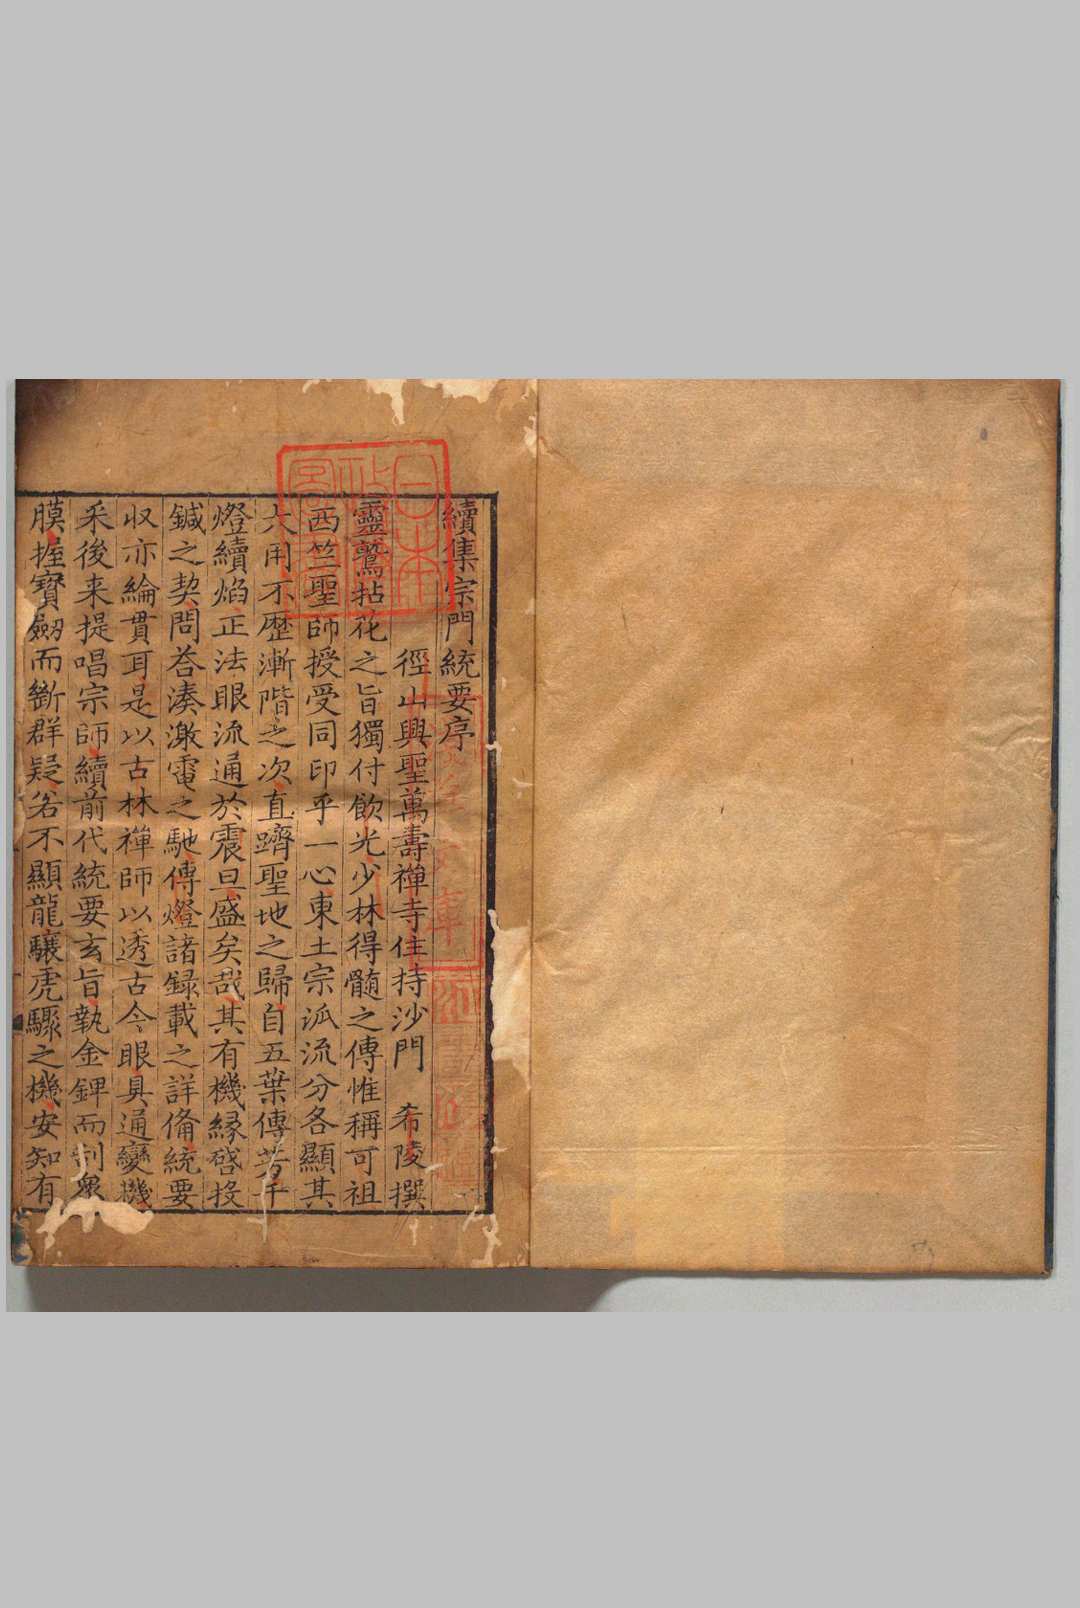 續集宗門統要序
徑山興聖萬壽禪寺住持沙門 希陵撰
靈鷲拈花之旨獨付飲光少林得髓之傳惟稱可祖
西竺聖師授受同印乎一心東土宗派流分各顯其
大用不歴漸階之次直躋聖地之歸自五葉傳芳千
燈續焰正法眼流通於震旦盛矣哉其有機縁啓投
鍼之契問荅湊激電之馳傳燈諸録載之詳備統要
収亦綸貫耳是以古林禪師以透古今眼具通變機
采後来提唱宗師續前代統要玄旨執金錍而刮衆
膜握寳劔而斷群疑若不顯龍驤虎驟之機安知有